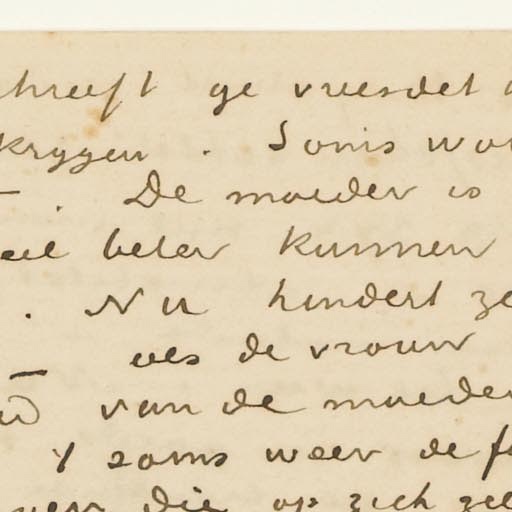 schreeft ge vreesdet
krygen. Soms wor
–. De moeder is
eel beter kunnen
. Nu hindert ze
– als de vrouw
van de moeder
soms weer de fa
die op zich zel